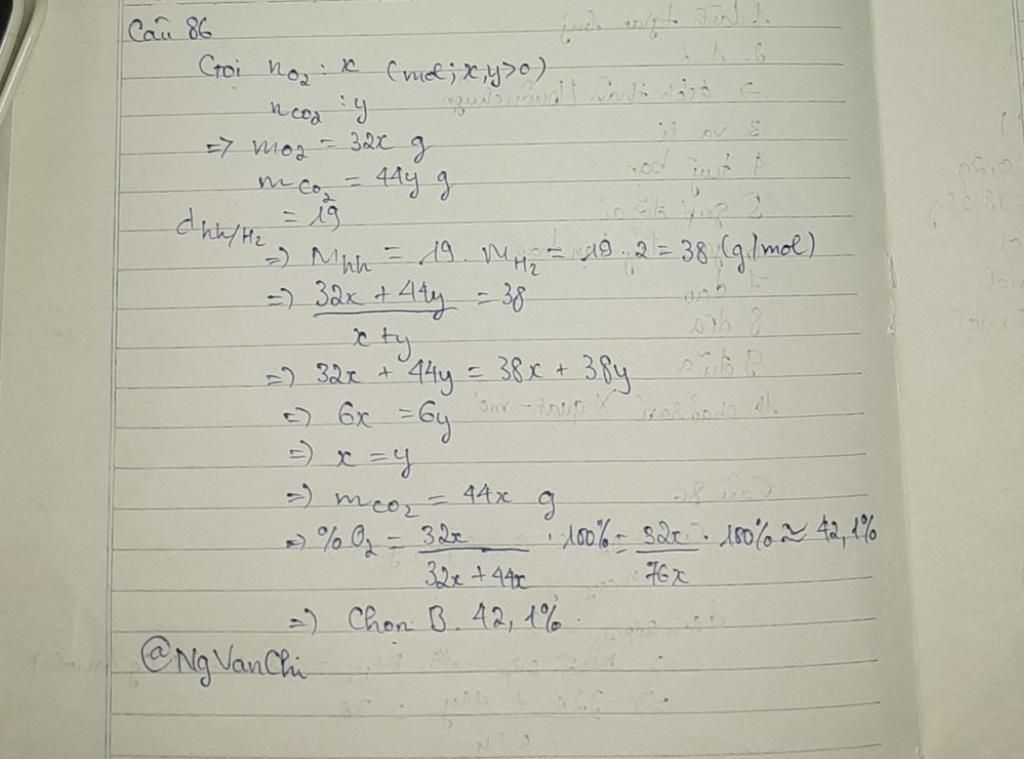 Câu 86
Gọi nO₂ : x (mol; x,y>0)
nCO₂ : y
=> mO₂ = 32x g
mCO₂ = 44y g
dhh/H₂ = 19
=> Mhh = 19 . MH₂ = 19 . 2 = 38 (g/mol)
=> (32x + 44y)/(x + y) = 38
=> 32x + 44y = 38x + 38y
=> 6x = 6y
=> x = y
=> mCO₂ = 44x g
=> %O₂ = 32x/(32x + 44x) . 100% = 32x/76x . 100% ≈ 42,1%
=> Chọn B. 42,1%.
@NgVanChi